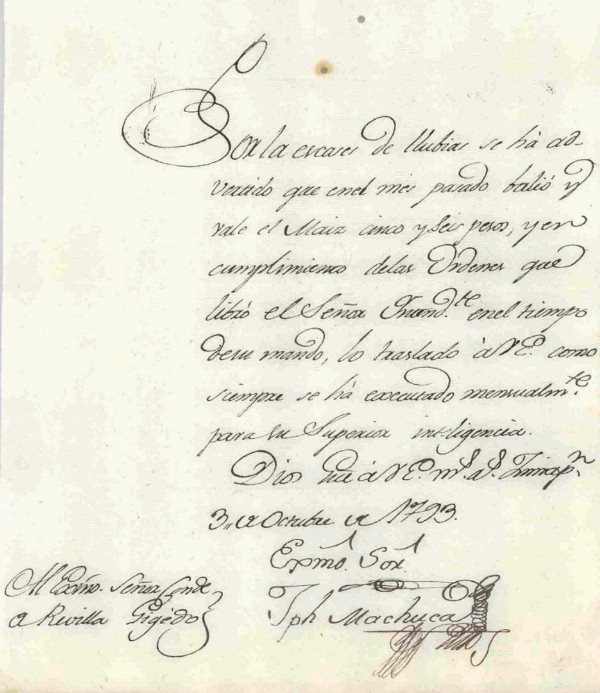 Por la escases de llubias se há ad-
vertido que en el mes pasado balió y
vale el Maiz cinco y seis pesos, y en
cumplimiento de las Ordenes que
libró el Señor Yntend.te en el tiempo
de su mando, lo traslado à V.E. como
siempre se há executado mensualm.te
para su Superior inteligencia.
Dios gue à V.E. m.s a.s
3,, de Octubre de 1793.
Exmô. Sor.
Jph Machuca
Al Exmô. Señor Conde
de Revilla Gigedo